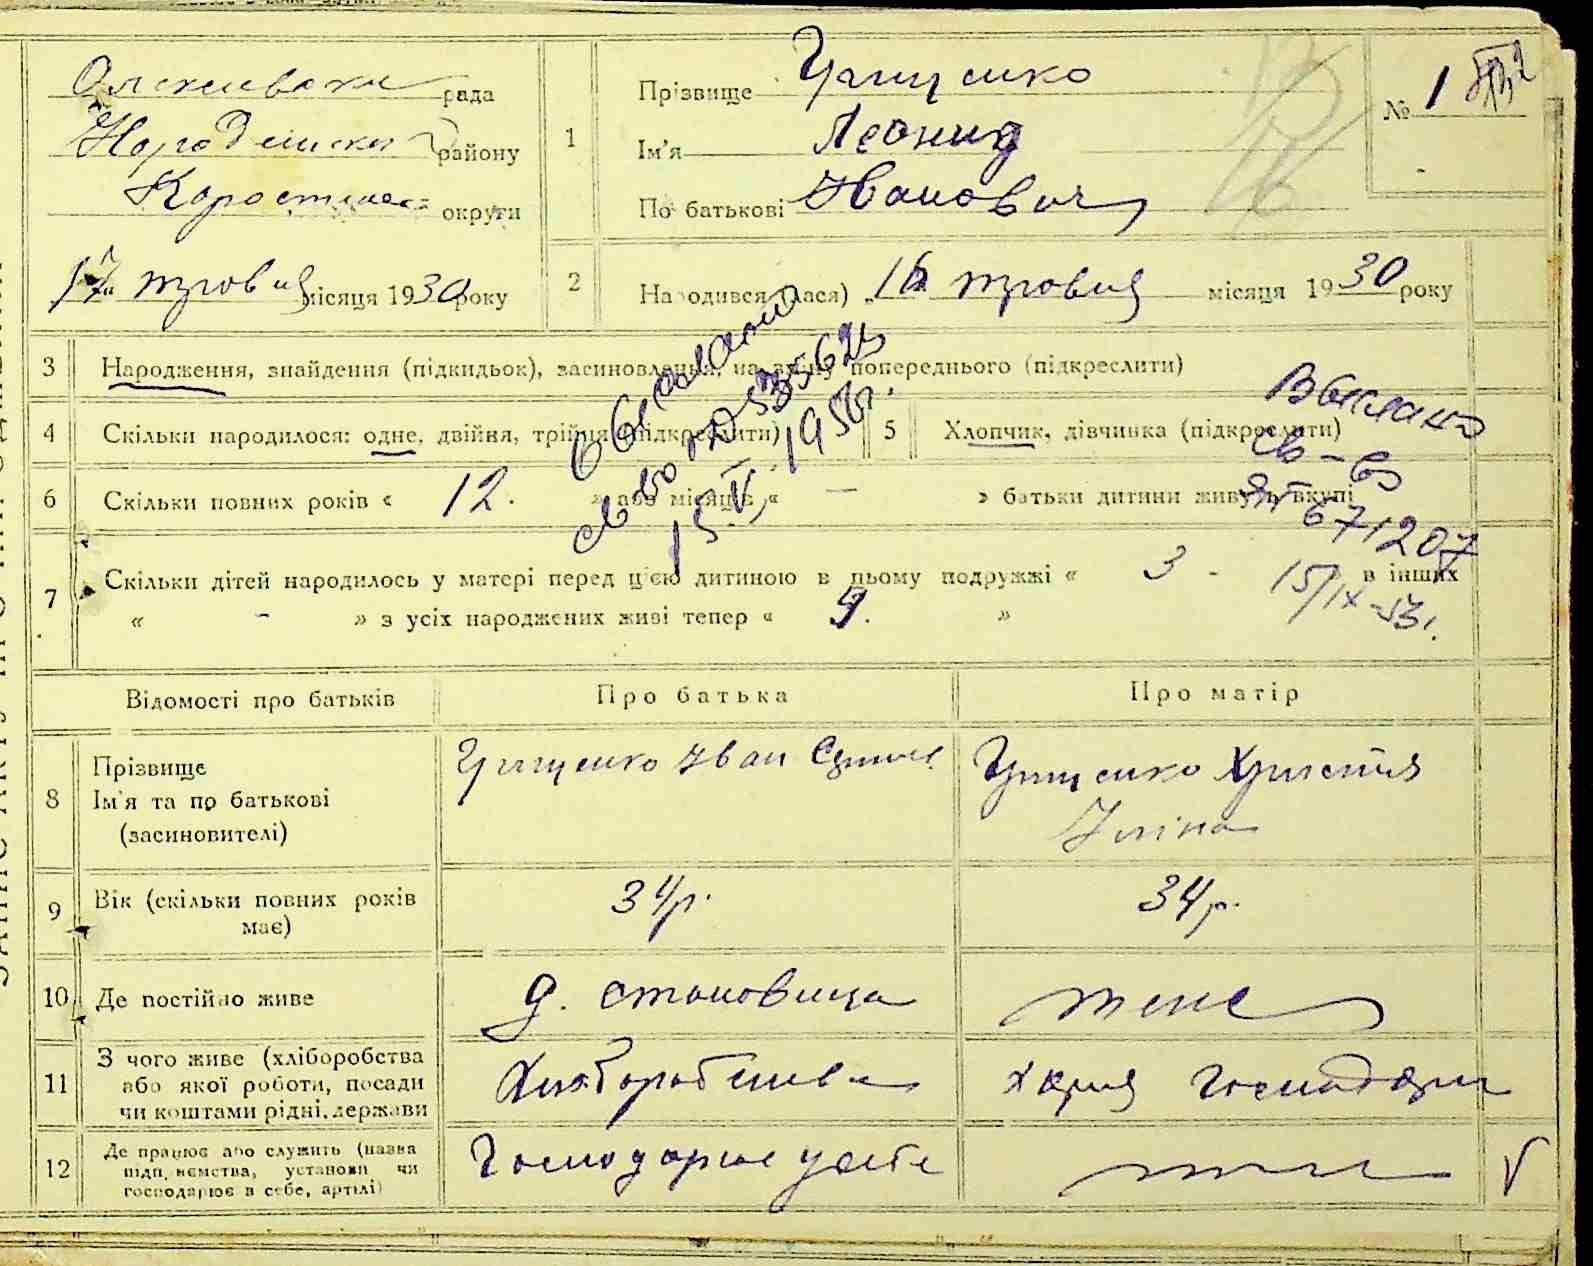 рада
Народицьк району
Коростенськ округи
17 травня місяця 1930 року
1
Прізвище Грищенко
Ім'я Леонид
По батькові Иванович
№ 1
2
Народився (лася) „16“ травня місяця 1930 року
3 Народження, знайдення (підкидьок), засиновлення, на зміну попереднього (підкреслити)
4 Скільки народилося: одне, двійня, трійня (підкреслити)
5 Хлопчик, дівчинка (підкреслити)
6 Скільки повних років « 12. » або місяців « — » батьки дитини живуть вкупі
7 Скільки дітей народилось у матері перед цією дитиною в цьому подружжі « 3 - » в інших
« - » з усіх народжених живі тепер « »
15/V 1956г.
Выслано
св-во
671207
15/IX-53г.
Відомості про батьків
Про батька
Про матір
8 Прізвище
Ім'я та по батькові
(засиновителі)
Грищенко Иван
Грищенко Христина
9 Вік (скільки повних років
має)
34 р.
34 р.
10 Де постійно живе
д. Становища
теж
11 З чого живе (хліборобства
або якої роботи, посади
чи коштами рідні, держави
Хліборобства
харч господари
12 Де працює або служить (назва
підп‚ємства, установи чи
господарює в себе, артілі)
Господарює у себе
V